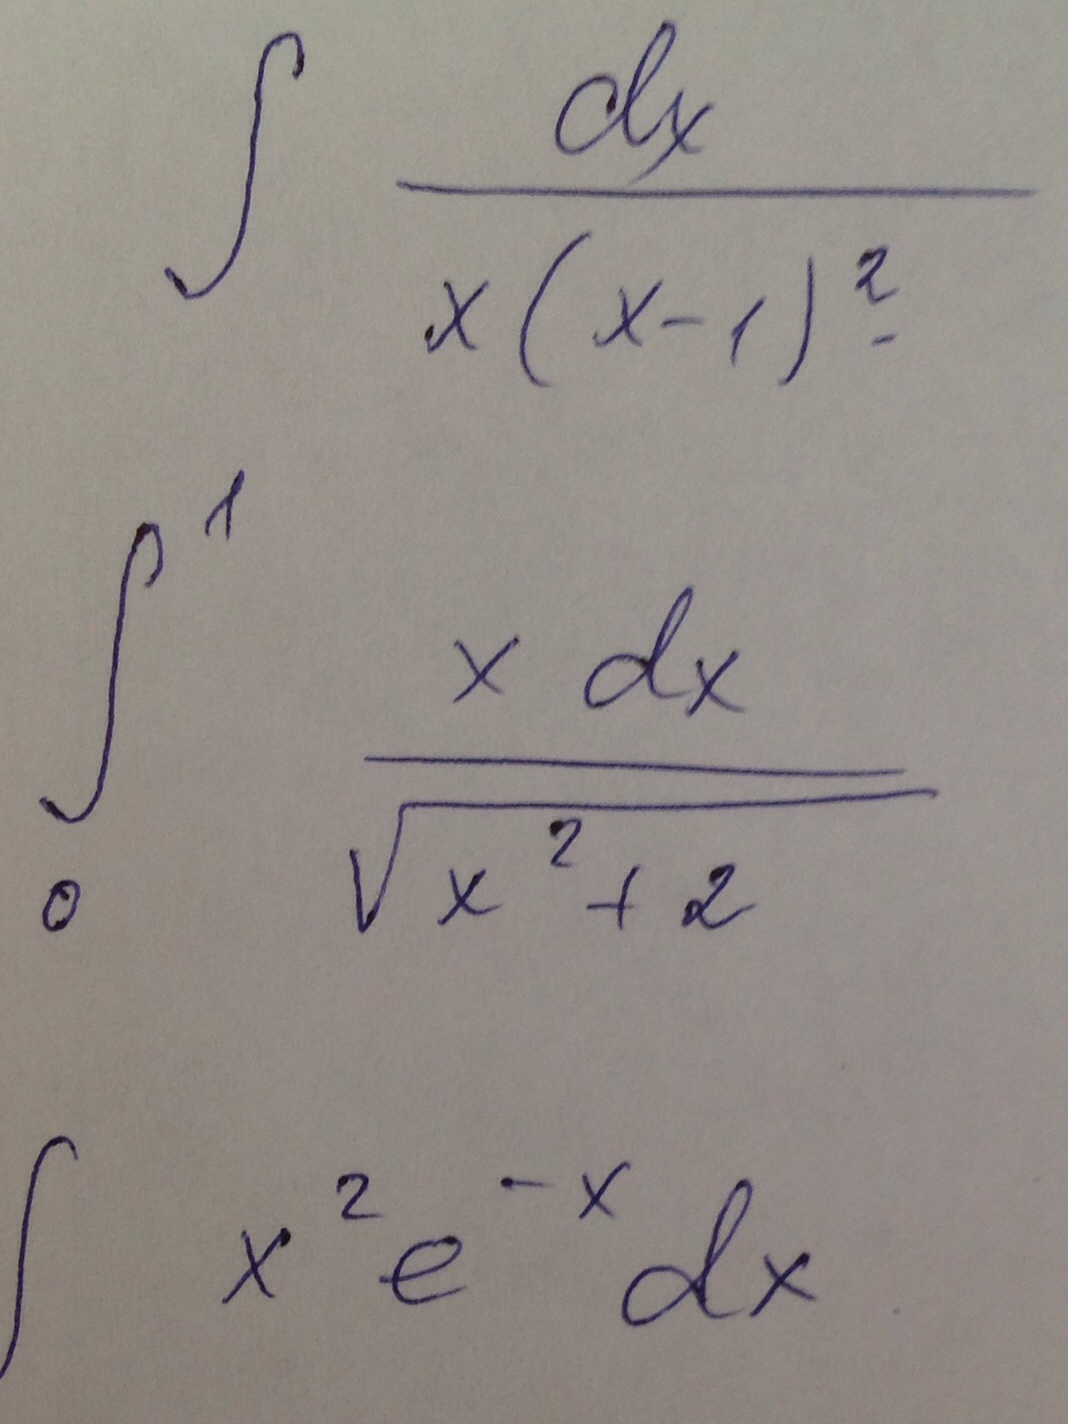 ∫ dx / x(x-1)²
∫₀¹ x dx / √(x²+2)
∫ x²e^(-x) dx